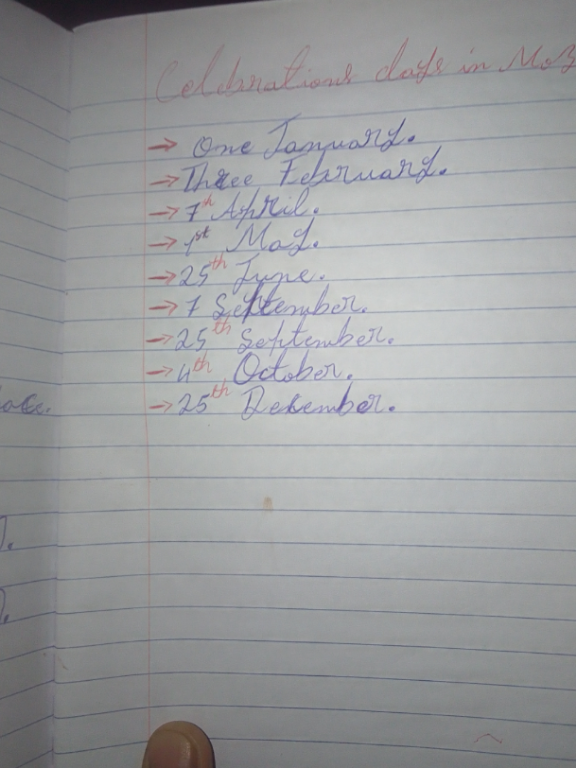 Celebrations days in Moz
→ One January.
→ Three February.
→ 7th April.
→ 1st May.
→ 25th June.
→ 7 September.
→ 25th September.
→ 4th October.
→ 25th December.